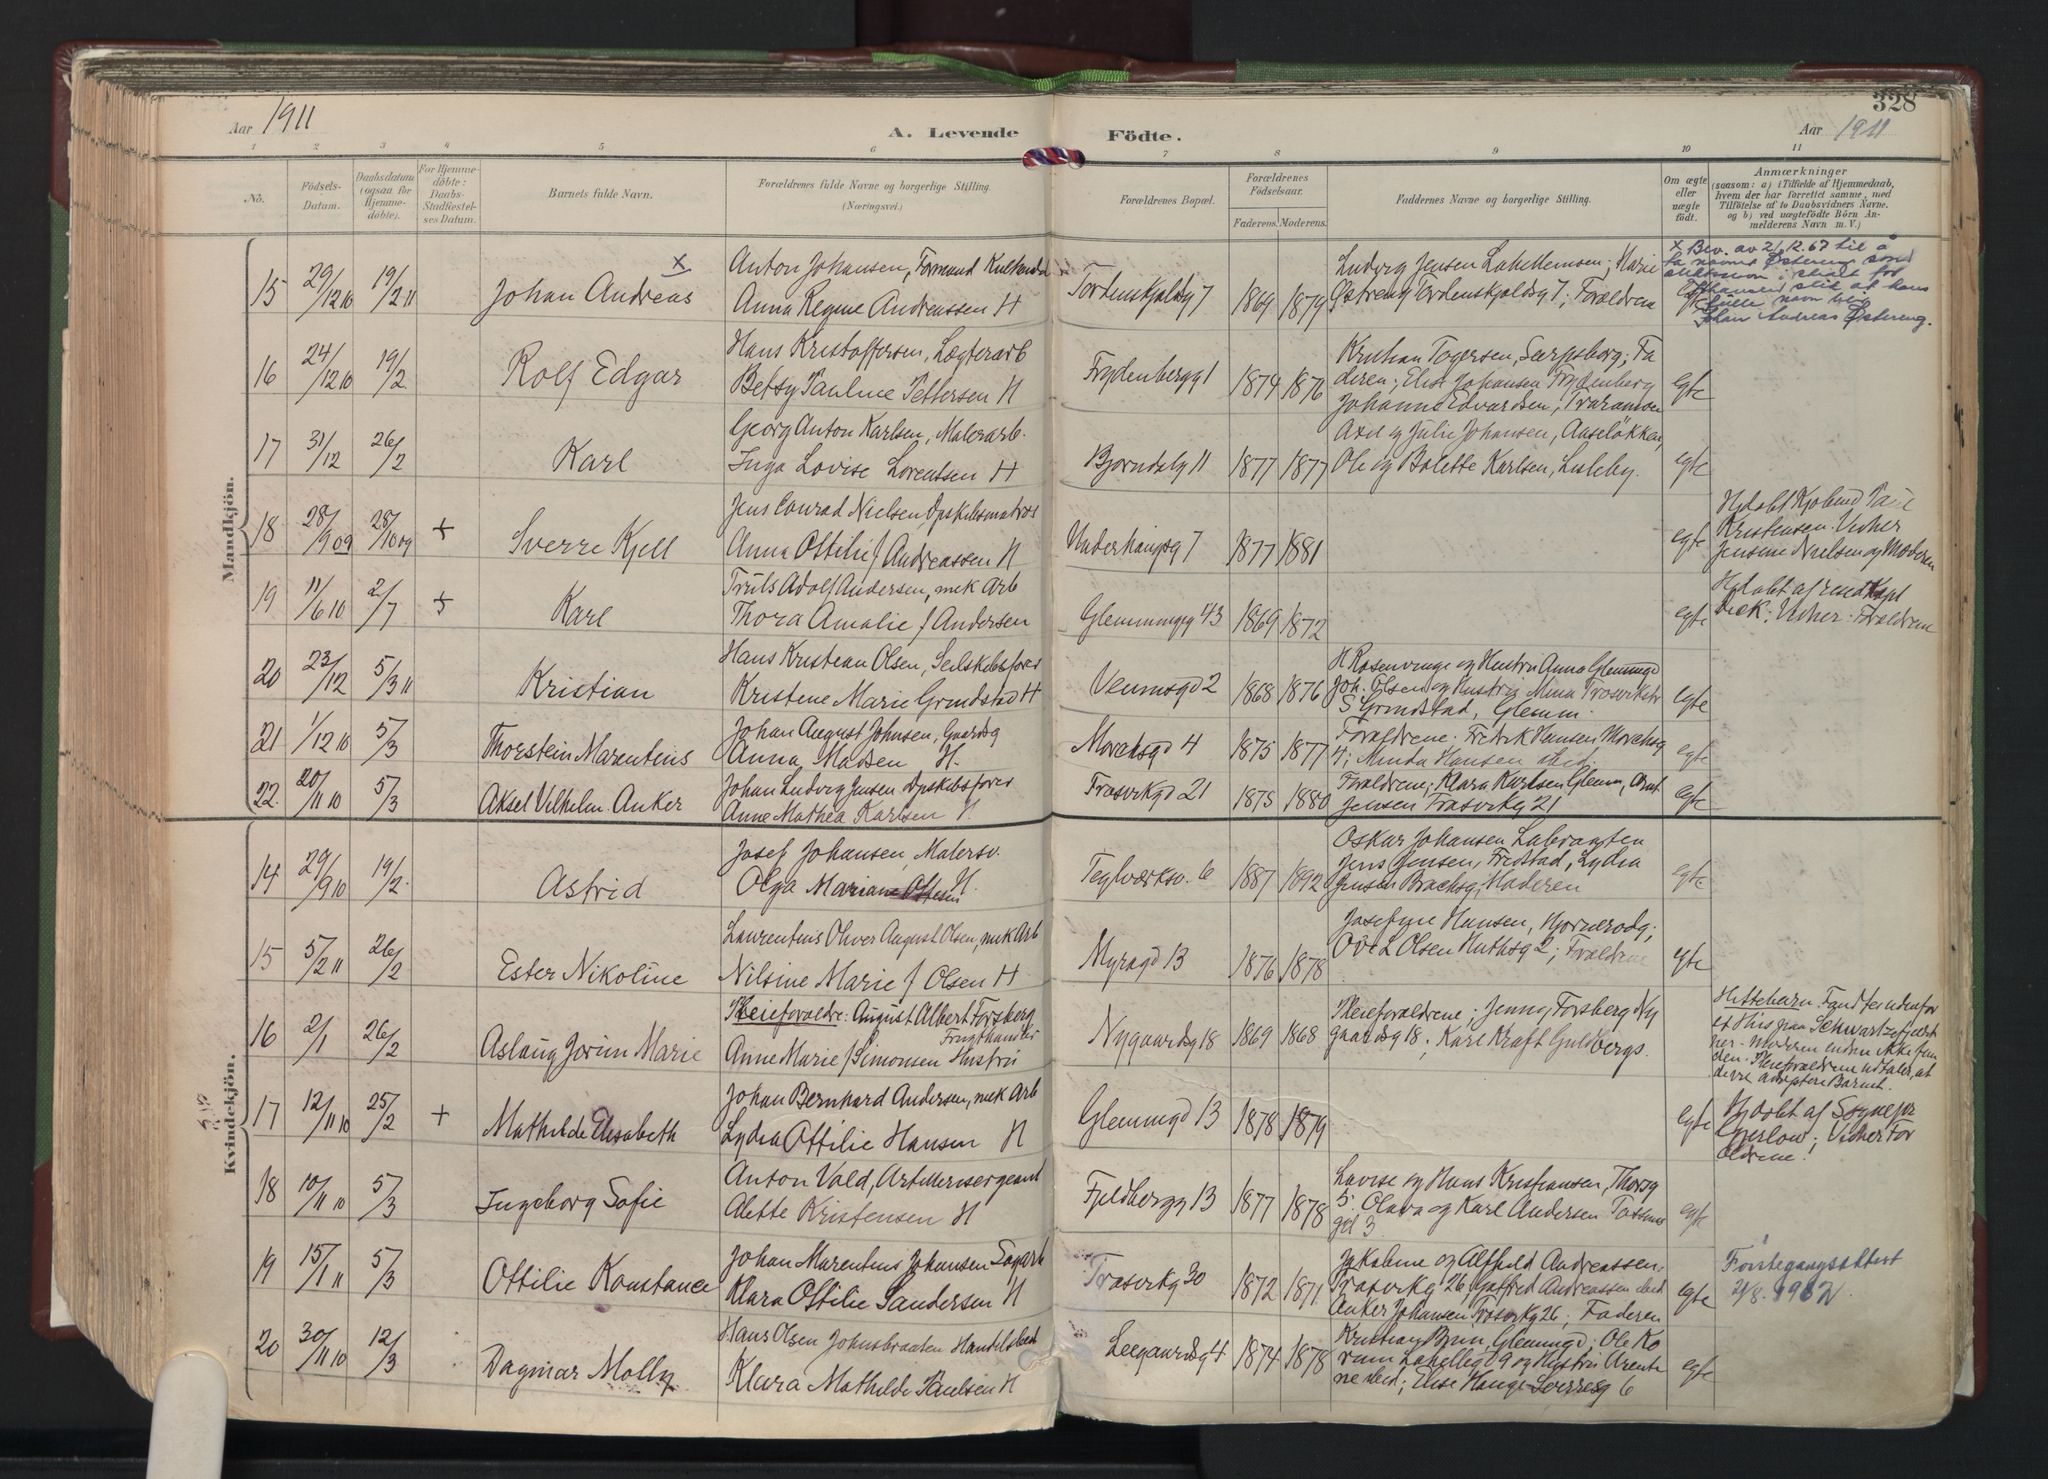 328
Aar 1911
A. Levende Födte.
Aar 1911
1 2 3 4 5 6 7 8 9 10 11
No.
Födsels-
Datum.
Daabsdatum
(ogsaa for
Hjemme-
döbte).
For Hjemme-
döbte:
Daabs-
Stadfæstel-
ses Datum.
Barnets fulde Navn.
Forældrenes fulde Navne og borgerlige Stilling.
(Næringsvei.)
Forældrenes Bopæl.
Forældrenes
Födselsaar.
Faderens. Moderens.
Faddernes Navne og borgerlige Stilling.
Om ægte
eller
uægte
födt.
Anmærkninger
(saasom: a) i Tilfælde af Hjemmedaab,
hvem der har forrettet samme, med
Tilföielse af to Daabsvidners Navne.
og b) ved uægtefödte Börn An-
melderens Navn m. V.)
Mandkjön.
15 29/12 10 19/2 11 Johan Andreas x
Anton Johansen, Formand
Anna Regine Andreassen H
Tordenskjoldsg 7 1869 1879
Ludvig Jensen Lahellemsen; Marie
Østreng Tordenskjoldsg 7; Forældrene
x Bev. av 2/12.67 til å
ta navnet Østereng som
slektsnavn i stedet for
Johansen slik at hans
fulle navn blir
Johan Andreas Østereng.
16 24/12 10 19/2 Rolf Edgar
Hans Kristoffersen, Lægterarb
Betsy Pauline Pettersen H
Frydenbergg 1 1874 1876
Kristian Togersen, Sarpsborg; Fa
deren; Elise Johansen Frydenberg
Johanne Edvardsen, Traraveien
egte
17 31/12 26/2 Karl
Georg Anton Karlsen, Malerarb.
Inga Lovise Lorentsen H
Bjorndalg 11 1877 1877
Axel og Julie Johansen, Aaseløkken,
Ole og Bolette Karlsen, Lisleby.
egte
18 28/9 09 28/10 09 + Sverre Kjell
Jens Conrad Nielsen, Dpskibsmatros
Anna Ottilie f Andreassen H
Underhaugsg 7 1877 1881
egte
Kristensen. Vidner
Jensine Nielsen og Moderen
19 11/6 10 2/7 + Karl
Truls Adolf Andersen, mek Arb
Thora Amalie f Andersen
Glemmingeg 43 1869 1872
egte
Vidner: Forældrene
20 23/12 5/3 11 Kristian
Hans Kristian Olsen, Seilskibsfører
Kristene Marie Grindstad H
Venusgd 2 1868 1876
H Rosenvinge og Hustru Anna Glemmgd
Joh. Olsen og Hustru Mina Trosvikstr
S Grindstad, Glemm.
egte
21 1/12 10 5/3 Thorstein Marentius
Johan August Johnsen, Gaardsg
Anna Madsen H.
Morchsgd 4 1875 1877
Forældrene. Fredrik Hansen Morchsg
4; Minda Hansen ibid.
egte
22. 20/11 10 5/3 Aksel Vilhelm Anker
Johan Ludvig Jensen Dpskibsfører
Anne Mathea Karlsen H.
Trosvikgd 21 1875 1880
Forældrene; Klara Karlsen Glemm, Arnt
Jensen Trosvikg 21
egte
Kvindekjön.
14 29/9 10 19/2. Astrid
Josef Johansen, Malersv.
Olga Mariane Ottesen H.
Teglværksv. 6 1887 1892
Oskar Johansen Labraaten
Jens Jensen, Fredstad, Lydia
Jensen Brochsg, Moderen
egte
15 5/2 11 26/2 Ester Nikoline
Laurentius Oliver August Olsen, mek Arb
Nilsine Marie f Olsen H
Myragd 13 1876 1878
Josefine Hansen,
Ove L Olsen Huthsg 2; Forældrene
egte
16 2/1 26/2 Aslaug Jorun Marie
Pleieforældre: August Albert Forsberg
Frugthandler
Anne Marie f Simonsen Hustru
Nygaardsg 18 1869 1868
Pleieforældrene; Jenny Forsberg Ny
gaardsg 18; Karl Kraft Guldbergs.
Hittebarn. Fandtes udenfor
et Hus paa
Moderen endnu ikke fun
den. Pleieforældrene udtaler, at
de vil adoptere Barnet.
17 12/11 10 25/2 + Mathilde Elisabeth
Johan Bernhard Andersen, mek Arb
Lydia Ottilie Hansen H
Glemmgd 13 1878 1879
egte
Hjdøbt af Sognepr
Vidner For
ældrene.
18 10/11 10 5/3 Ingeborg Sofie
Anton Vold, Artillerisergeant
Alette Kristensen H
Fjeldbergg 13 1877 1878
Lovise og Hans Kristiansen, Thorsg
5. Olava og Karl Andersen
gd 3
egte
19 15/1 11 5/3 Ottilie Konstance
Johan Marentius Johansen Sagarb
Klara Ottilie Sandersen H
Trosvikg 30 1872 1871
Jakobine og Alfhild Andreassen.
Trosvikg 26, Gotfred Andreassen ibid
Anker Johansen Trosvikg 26; Faderen
egte
Førstegangsattest
21/8. 1962
20 30/11 10 12/3 Dagmar Molly
Hans Olsen Johnsbraaten
Klara Mathilde Paulsen H
Leegaardsg 4 1874 1878
Kristian Brun, Glemmgd; Ole Ko
rum Lahelleg 9 og Hustru Arenti
ne ibid; Elise Hauge Sorresg 6
egte